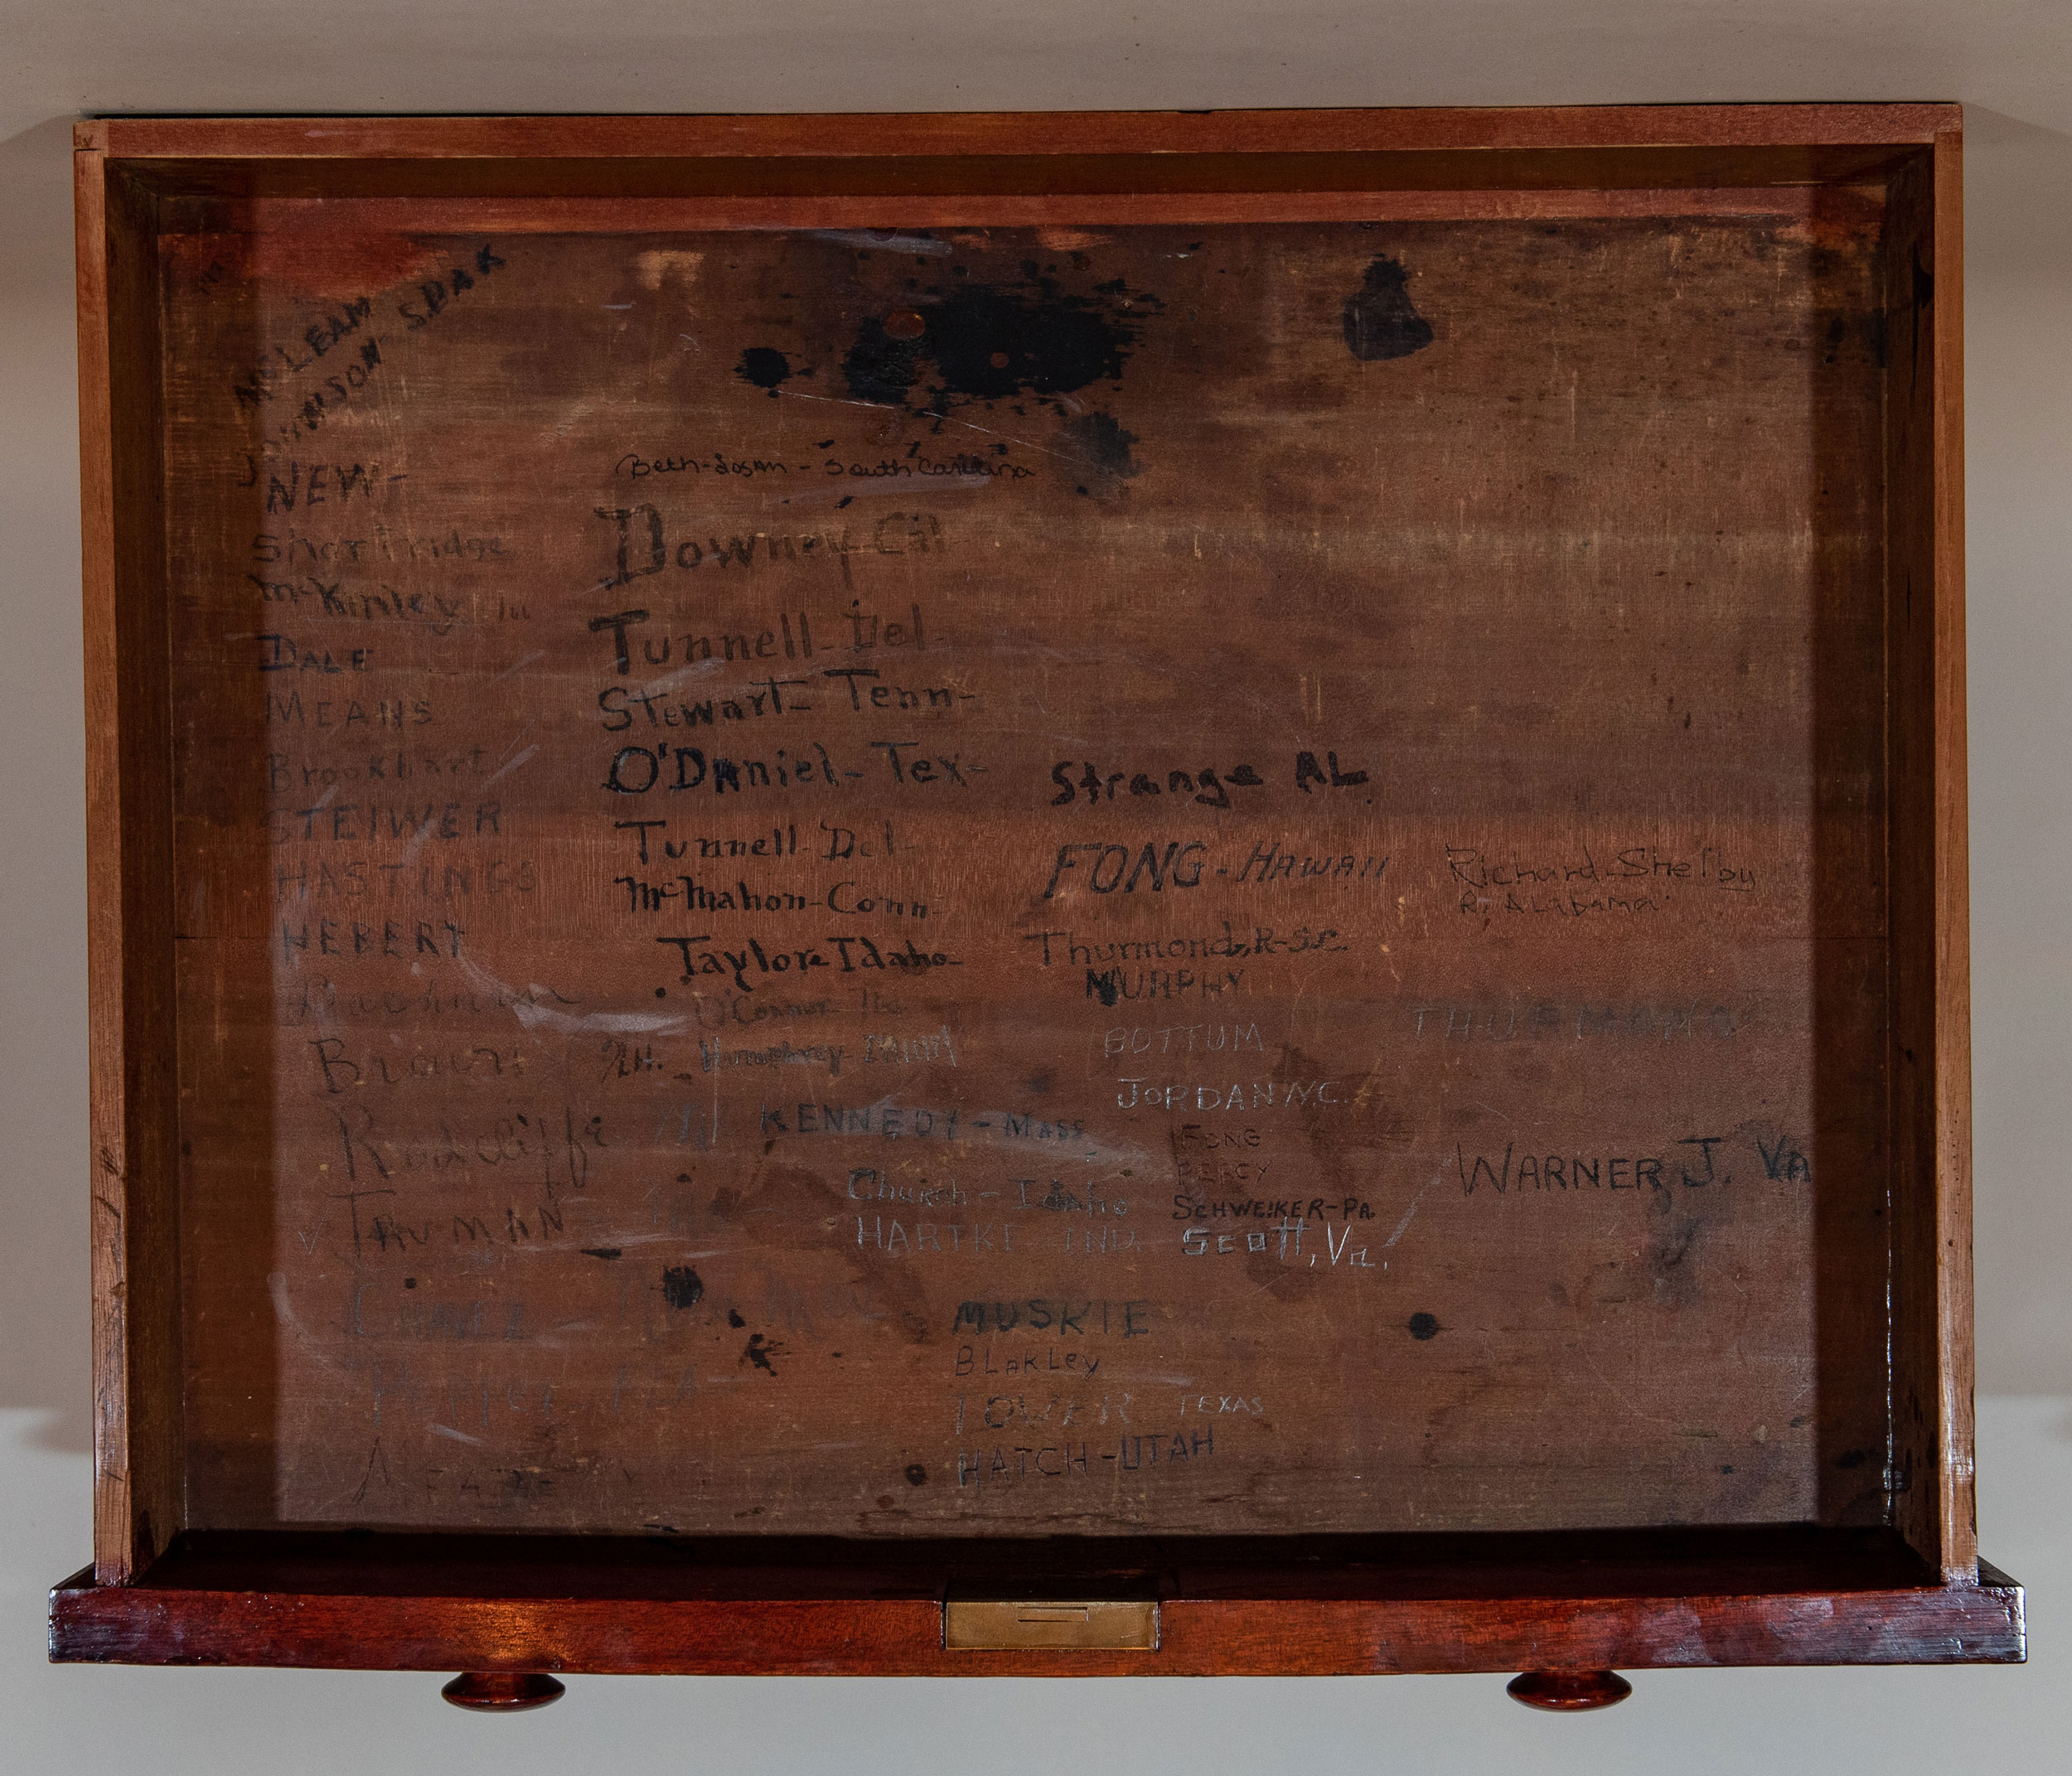 McLEAN
JOHNSON- S.DAK
NEW-
Shortridge
McKinley Ill
DALE
MEANS
Brookhart
STEIWER
HASTINGS
HEBERT
Brown N.H.
Radcliffe
TRUMAN
CHAVEZ - New Mex
Pepper Fla
MEAD
Beth-Logan - South Carolina
Downey Cal-
Tunnell-Del-
Stewart-Tenn-
O'Daniel-Tex-
Tunnell-Del-
McMahon-Conn-
Taylor-Idaho-
O'Conor Md
Humphrey-MINN
KENNEDY-MASS
Church-Idaho
HARTKE IND.
MUSKIE
BLAKLEY
TOWER TEXAS
HATCH-UTAH
Strange AL
FONG-HAWAII
Thurmond, R-S.C.
MURPHY
BOTTUM
JORDAN N.C.
FONG
PERCY
SCHWEIKER-PA
SCOTT, Va.
Richard-Shelby
R. ALabama
THURMOND
WARNER J. VA